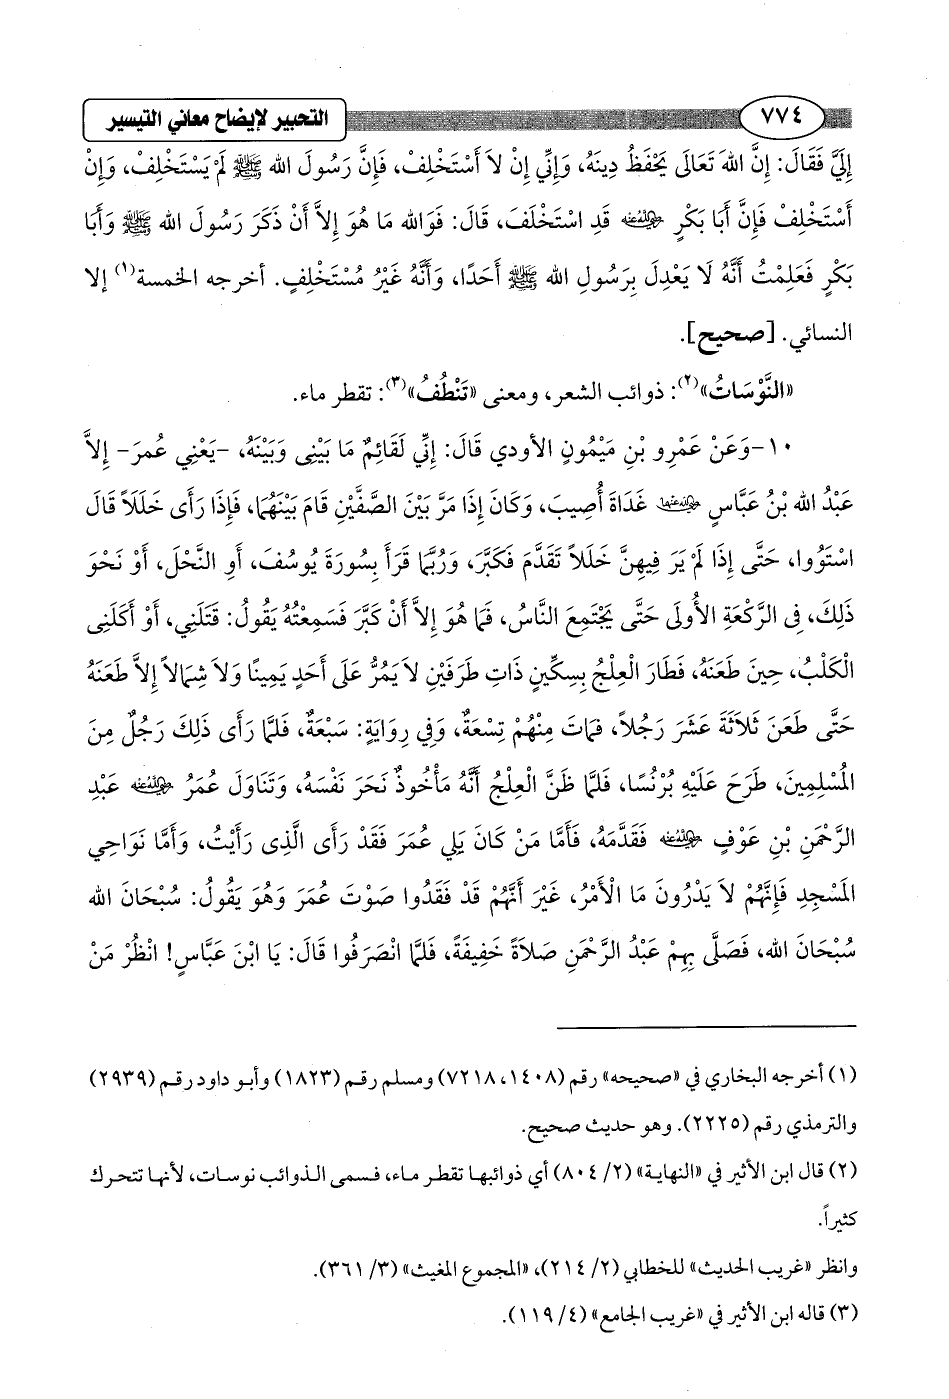 ٧٧٤
التحبير لإيضاح معاني التيسير
إِلَيَّ فَقَالَ: إِنَّ اللهَ تَعَالَى يَحْفَظُ دِينَهُ، وَإِنِّي إِنْ لاَ أَسْتَخْلِفْ، فَإِنَّ رَسُولَ الله ﷺ لَمْ يَسْتَخْلِفْ، وَإِنْ
أَسْتَخْلِفْ فَإِنَّ أَبَا بَكْرٍ رضي الله عنه قَدِ اسْتَخْلَفَ، قَالَ: فَوَالله مَا هُوَ إِلاَّ أَنْ ذَكَرَ رَسُولَ الله ﷺ وَأَبَا
بَكْرٍ فَعَلِمْتُ أَنَّهُ لَا يَعْدِلَ بِرَسُولِ الله ﷺ أَحَدًا، وَأَنَّهُ غَيْرُ مُسْتَخْلِفٍ. أخرجه الخمسة(١) إلا
النسائي. [صحيح].
«النَّوْسَاتُ»(٢): ذوائب الشعر، ومعنى «تَنْطُفُ»(٣): تقطر ماء.
١٠-وَعَنْ عَمْرِو بْنِ مَيْمُونٍ الأودي قَالَ: إِنِّي لَقَائِمٌ مَا بَيْنِى وَبَيْنَهُ، -يَعْنِي عُمرَ- إِلاَّ
عَبْدُ الله بْنُ عَبَّاسٍ رضي الله عنهما غَدَاةَ أُصِيبَ، وَكَانَ إِذَا مَرَّ بَيْنَ الصَّفَّيْنِ قَامَ بَيْنَهُمَا، فَإِذَا رَأَى خَلَلاً قَالَ
اسْتَوُوا، حَتَّى إِذَا لَمْ يَرَ فِيهِنَّ خَلَلاً تَقَدَّمَ فَكَبَّرَ، وَرُبَّمَا قَرَأَ بِسُورَةَ يُوسُفَ، أَوِ النَّحْلَ، أَوْ نَحْوَ
ذَلِكَ، فِى الرَّكْعَةِ الأُولَى حَتَّى يَجْتَمِعَ النَّاسُ، فَمَا هُوَ إِلاَّ أَنْ كَبَّرَ فَسَمِعْتُهُ يَقُولُ: قَتَلَنِي، أَوْ أَكَلَنِى
الْكَلْبُ، حِينَ طَعَنَهُ، فَطَارَ الْعِلْجُ بِسِكِّينٍ ذَاتِ طَرَفَيْنِ لاَ يَمُرُّ عَلَى أَحَدٍ يَمِينًا وَلاَ شِمَالاً إِلاَّ طَعَنَهُ
حَتَّى طَعَنَ ثَلاَثَةَ عَشَرَ رَجُلاً، فَمَاتَ مِنْهُمْ تِسْعَةٌ، وَفِي رِوَايَةٍ: سَبْعَةٌ، فَلَمَّا رَأَى ذَلِكَ رَجُلٌ مِنَ
المُسْلِمِينَ، طَرَحَ عَلَيْهِ بُرْنُسًا، فَلَمَّا ظَنَّ الْعِلْجُ أَنَّهُ مَأْخُوذٌ نَحَرَ نَفْسَهُ، وَتَنَاوَلَ عُمَرُ رضي الله عنه عَبْدِ
الرَّحْمَنِ بْنِ عَوْفٍ رضي الله عنه فَقَدَّمَهُ، فَأَمَّا مَنْ كَانَ يَلِي عُمَرَ فَقَدْ رَأَى الَّذِى رَأَيْتُ، وَأَمَّا نَوَاحِي
المَسْجِدِ فَإِنَّهُمْ لاَ يَدْرُونَ مَا الْأَمْرُ، غَيْرَ أَنَّهُمْ قَدْ فَقَدُوا صَوْتَ عُمَرَ وَهُوَ يَقُولُ: سُبْحَانَ الله
سُبْحَانَ الله، فَصَلَّى بِهِمْ عَبْدُ الرَّحْمَنِ صَلاَةً خَفِيفَةً، فَلَمَّا انْصَرَفُوا قَالَ: يَا ابْنَ عَبَّاسٍ! انْظُرْ مَنْ
(١) أخرجه البخاري في «صحيحه» رقم (١٤٠٨، ٧٢١٨) ومسلم رقم (١٨٢٣) وأبو داود رقم (٢٩٣٩)
والترمذي رقم (٢٢٢٥). وهو حديث صحيح.
(٢) قال ابن الأثير في «النهاية» (٢/ ٨٠٤) أي ذوائبها تقطر ماء، فسمى الذوائب نوسات، لأنها تتحرك
كثيراً.
وانظر «غريب الحديث» للخطابي (٢/ ٢١٤)، «المجموع المغيث» (٣/ ٣٦١).
(٣) قاله ابن الأثير في «غريب الجامع» (٤/ ١١٩).